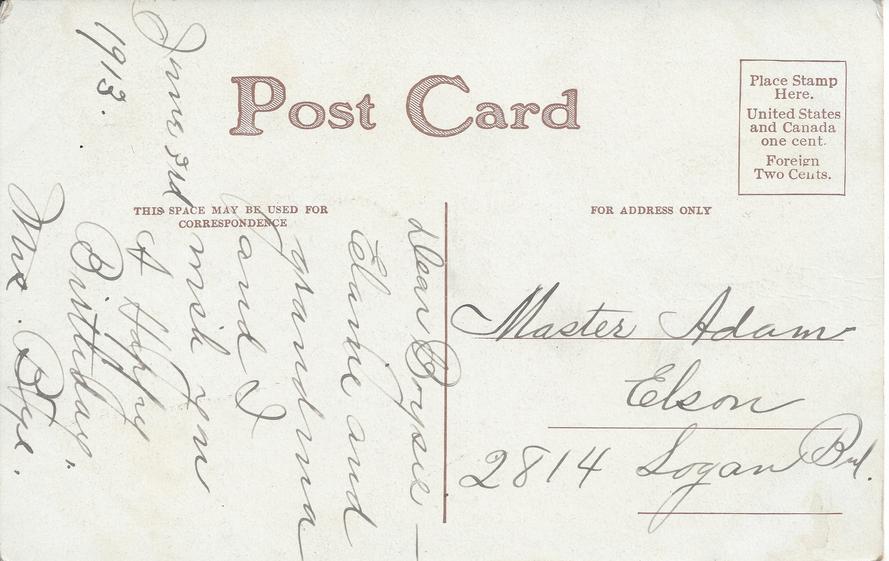 Post Card
Place Stamp
Here.
United States
and Canada
one cent.
Foreign
Two Cents.
THIS SPACE MAY BE USED FOR
CORRESPONDENCE
FOR ADDRESS ONLY
Dear Boysie —
Elaine and
grandma
and I
wish you
A Happy
Birthday.
Mrs. Bye.
June 3rd
1913.
Master Adam
Elson
2814 Logan Bvl.